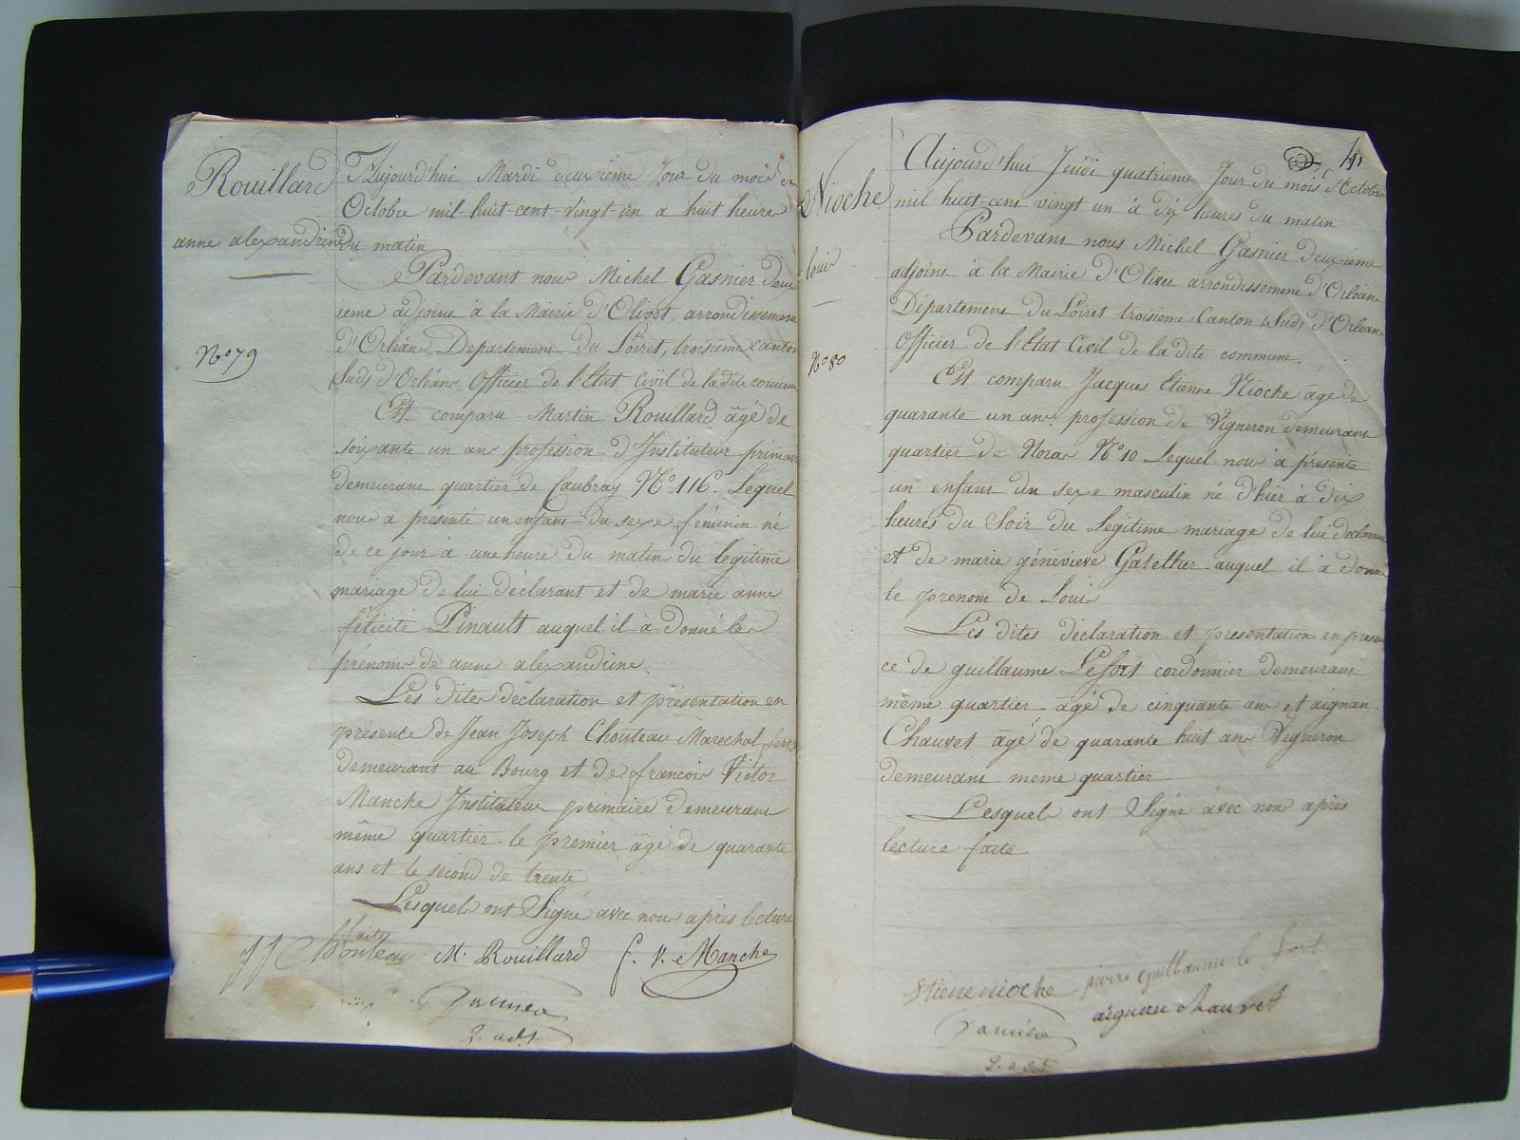 Rouillard
anne alexandrine
N° 79
Aujourd'hui Mardi deuxième Jour du mois de
Octobre mil-huit-cent-vingt-un a huit heures
du matin
Pardevant nous Michel Gasnier deux
ieme adjoint à la Mairie d'Olivet, arrondissement
d'Orléans Département du Loiret, troisième canton
Suds d'Orléans Officier de l'Etat Civil de la dite commune
Est comparu Martin Rouillard âgé de
soixante un ans profession d'Instituteur primaire
demeurant quartier de Caubray N° 116. Lequel
nous a présenté un enfant du sexe féminin né
de ce jour à une heure du matin du légitime
mariage de lui déclarant et de marie anne
félicité Pinault auquel il à donné les
prénoms de anne alexandrine
Les dites déclaration et présentation en
présente de Jean Joseph Chouteau Marechal
demeurant au Bourg et de françois Victor
Manche Instituteur primaire demeurant
même quartier le premier âgé de quarante
ans et le second de trente
Lesquels ont Signé avec nous après lecture
faite
JJ Chouteau M. Rouillard f. V. Manche
Gasnier
2. adj.
41
Nioche
Louis
N° 80
Aujourd'hui Jeudi quatrieme Jour du mois d'Octobre
mil huit-cent vingt un à dix heures du matin
Pardevant nous Michel Gasnier deuxième
adjoint à la Mairie d'Olivet arrondissement d'Orléans
Département du Loiret troisieme Canton Suds d'Orléans
Officier de l'Etat Civil de la dite commune.
Est comparu Jacques Etienne Nioche âgé de
quarante un ans profession de Vigneron demeurant
quartier de Noras N° 10 Lequel nous à présenté
un enfant du sexe masculin né d'hier à dix
heures du Soir du légitime mariage de lui déclarant
et de marie géneviève Gatellier auquel il à donné
le prenom de Louis
Les dites déclaration et presentation en presen
ce de guillaume Lefort cordonnier demeurant
même quartier âgé de cinquante ans et aignan
Chauvet âgé de quarante huit ans Vigneron
demeurant meme quartier
Lesquels ont Signé avec nous après
lecture faite
Etienne nioche pierre guillaume le fort
aignan Chauvet
Gasnier
2. adj.